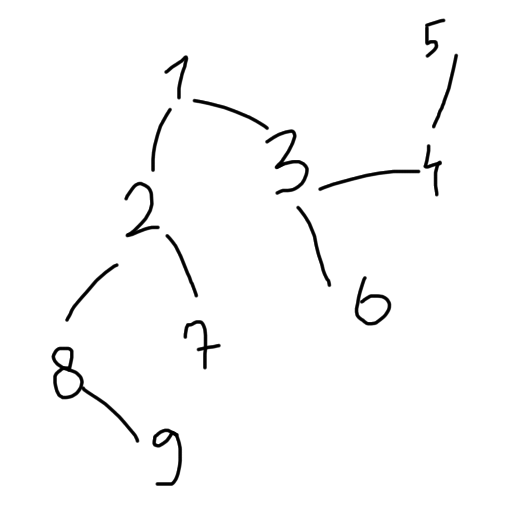 5
1
3
4
2
6
7
8
9